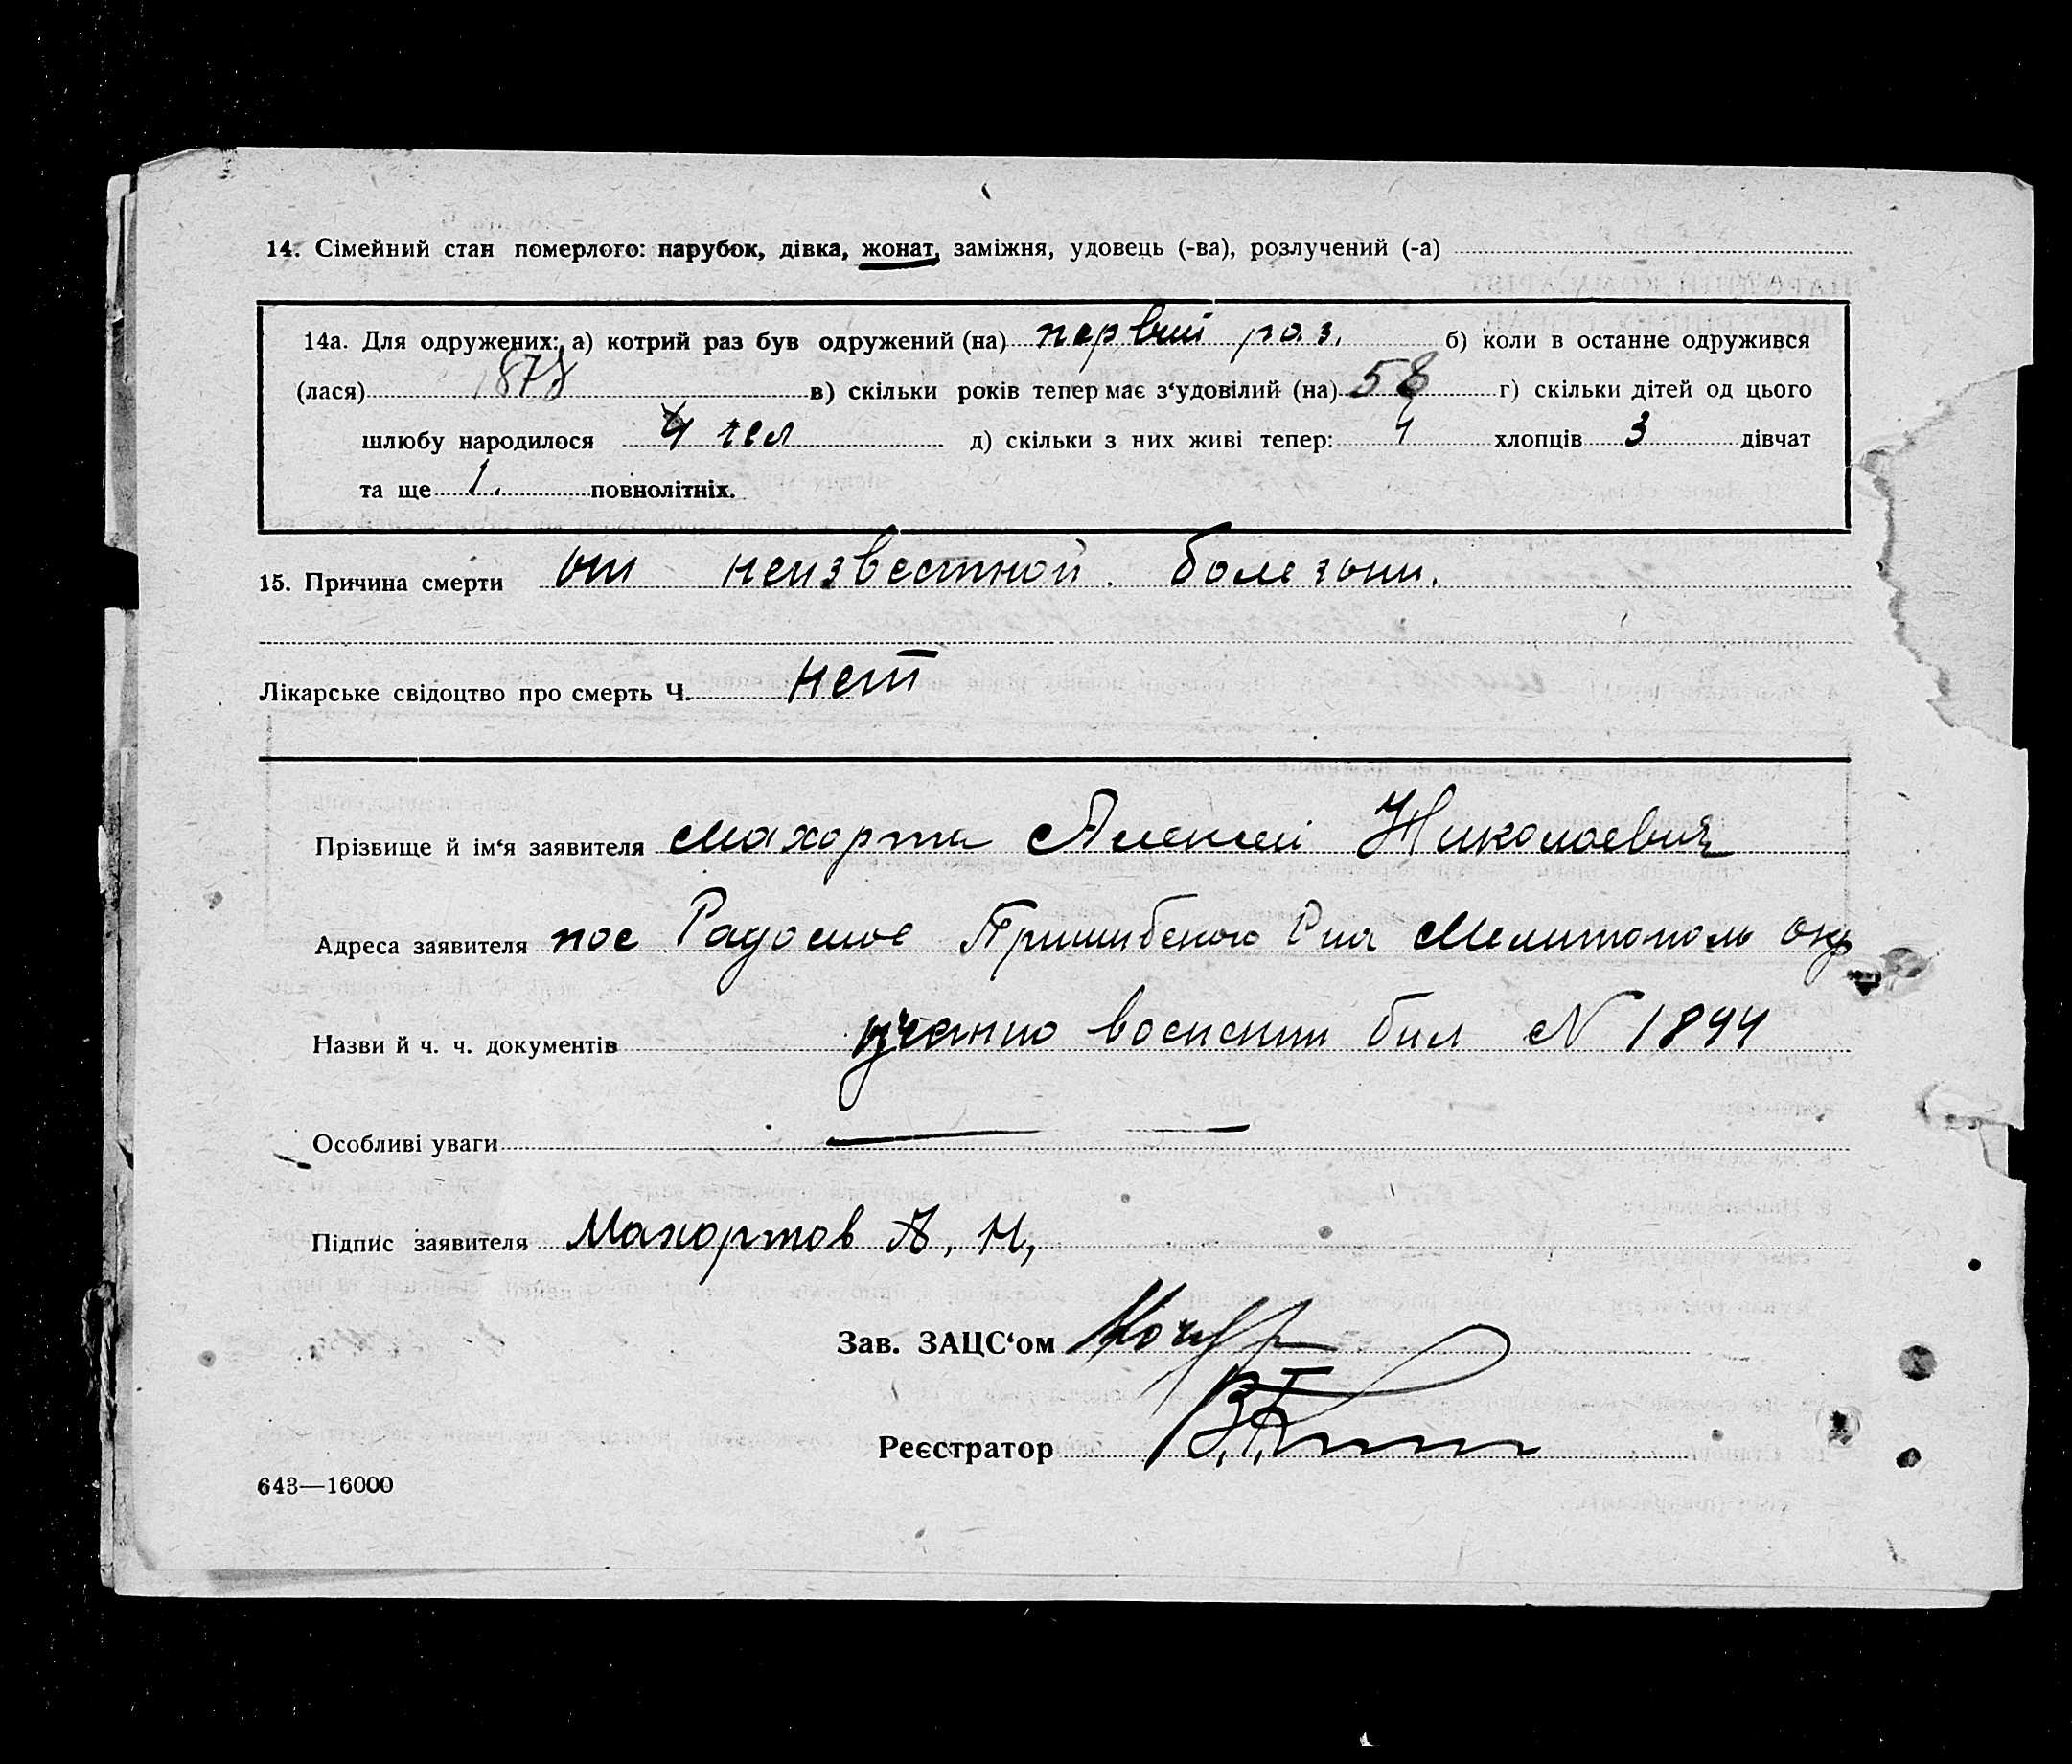 14. Сімейний стан померлого: парубок, дівка, жонат, заміжня, удовець (-ва), розлучений (-а)
14а. Для одружених: а) котрий раз був одружений (на) первий раз. б) коли в останнє одружився
(лася) 1878 в) скільки років тепер має з‘удовілий (на) 58 г) скільки дітей од цього
шлюбу народилося 4 чел д) скільки з них живі тепер: 4 хлопців 3 дівчат
та ще 1. повнолітніх.
15. Причина смерти от неизвестной болезни.
Лікарське свідоцтво про смерть Ч. нет
Прізвище й ім‘я заявителя Махорта Алексей Николаевич
Адреса заявителя пос Радосное Пришибского Р на Мелитополь окр
Назви й ч. ч. документів бил N 1894
Особливі уваги
Підпис заявителя Махортов А, Н,
Зав. ЗАЦС‘ом
Реєстратор
643—16000